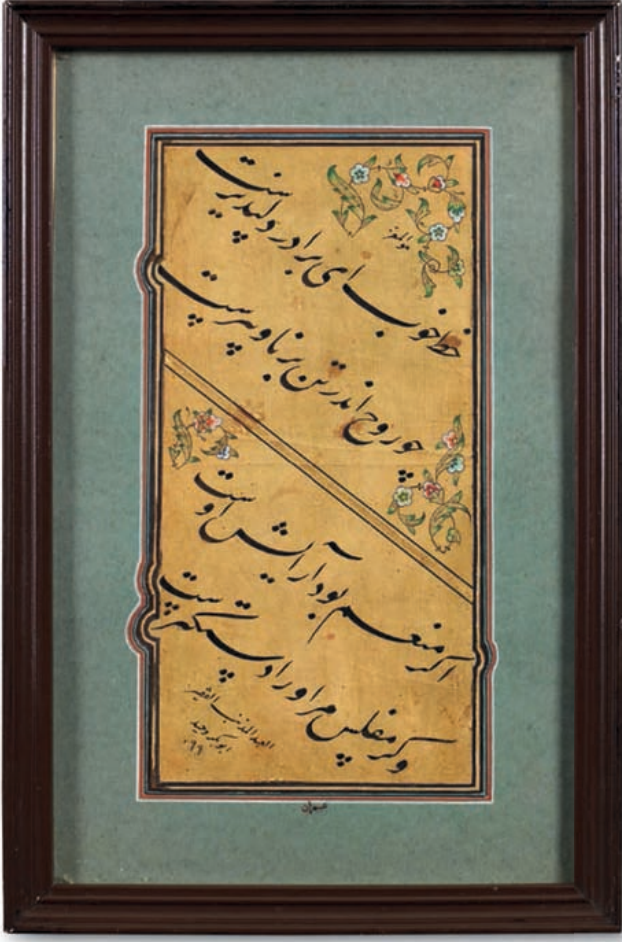 خط خوب ای برادر دلپذیرست
چو روح اندر تن برنا و پیرست
اگر منعم بود آرایش اوست
وگر مفلس مر او را دستگیرست
العبد المذنب الفقیر
ابوبکر وحید